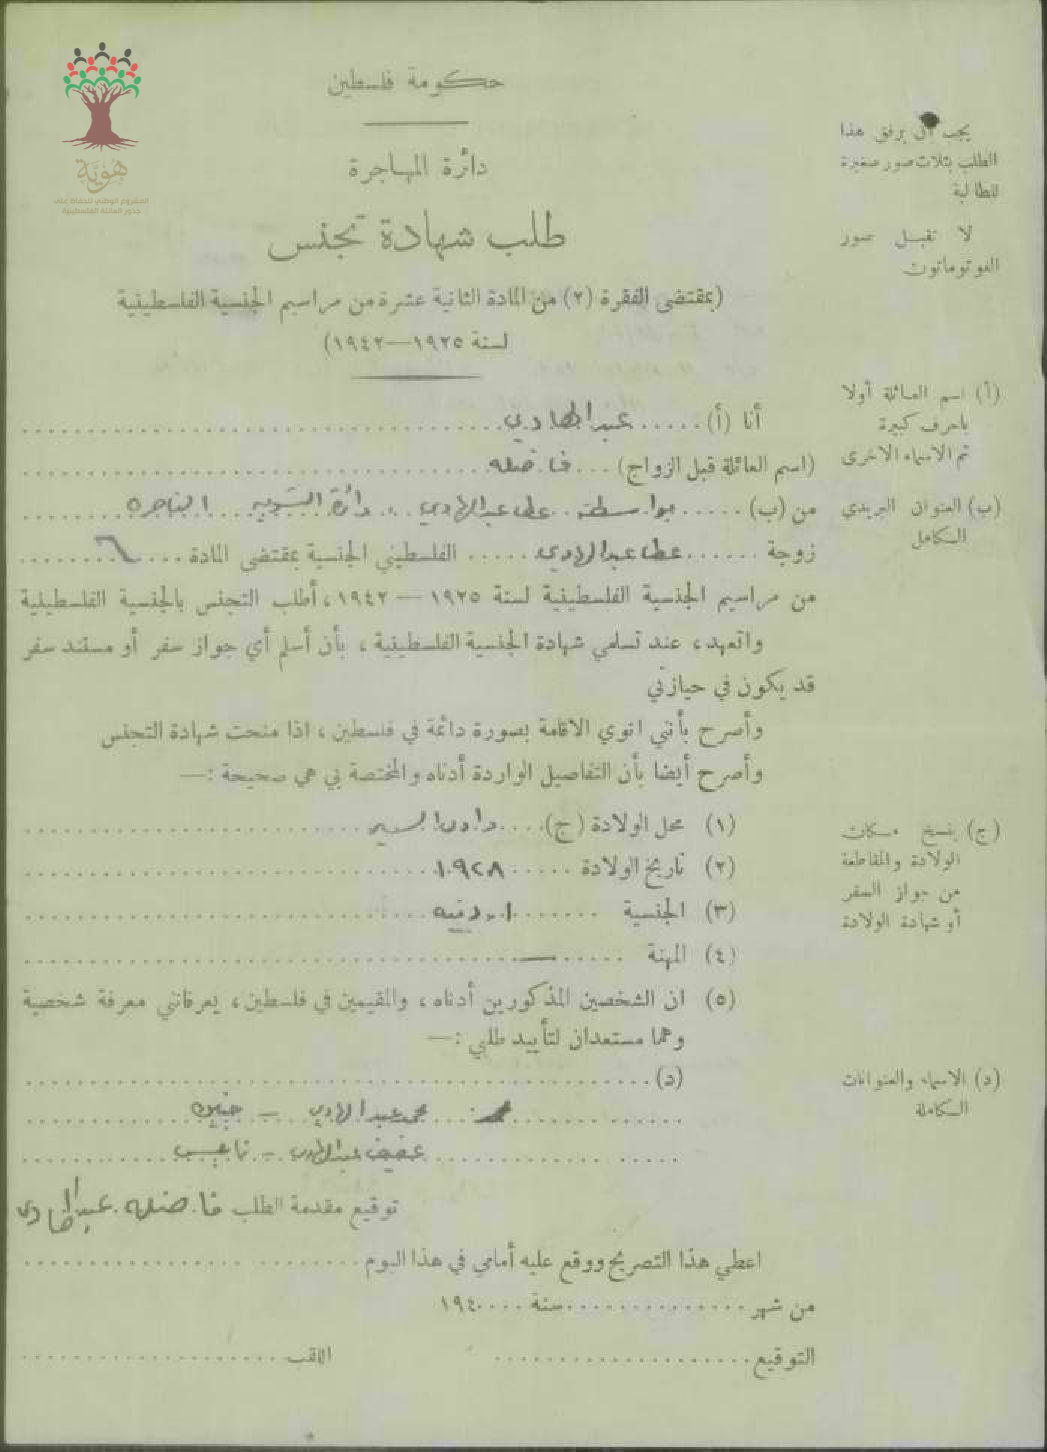 هوية
المشروع الوطني للحفاظ على
جذور العائلة الفلسطينية
حكومة فلسطين
دائرة المهاجرة
طلب شهادة تجنس
(بمقتضى الفقرة (٢) من المادة الثانية عشرة من مراسيم الجنسية الفلسطينية
لسنة ١٩٢٥—١٩٤٢)
يجب أن يرفق هذا
الطلب بثلاث صور صغيرة
للطالبة
لا تقبل صور
الفوتوماتون
(أ) اسم العائلة أولا
باحرف كبيرة
ثم الاسماء الاخرى
أنا (أ) ..... عبد الهادي
(اسم العائلة قبل الزواج) ... فاضله
(ب) العنوان البريدي
الكامل
من (ب) ..... بواسطة علي عبد الهادي .. دائرة التسوية الناصرة
زوجة ...... عطا عبد الهادي ..... الفلسطيني الجنسية بمقتضى المادة ... ٦
من مراسيم الجنسية الفلسطينية لسنة ١٩٢٥ — ١٩٤٢، أطلب التجنس بالجنسية الفلسطينية
واتعهد، عند تسلمي شهادة الجنسية الفلسطينية، بأن أسلم أي جواز سفر أو مستند سفر
قد يكون في حيازتي
وأصرح بأنني انوي الاقامة بصورة دائمة في فلسطين، اذا منحت شهادة التجنس
وأصرح أيضا بأن التفاصيل الواردة أدناه والمختصة بي هي صحيحة :—
(١) محل الولادة (ج) ....
(ج) ينسخ مكان
الولادة والمقاطعة
من جواز السفر
أو شهادة الولادة
(٢) تاريخ الولادة ..... ١٩٢٨
(٣) الجنسية ....... اردنيه
(٤) المهنة ...... —
(٥) ان الشخصين المذكورين أدناه، والمقيمين في فلسطين، يعرفانني معرفة شخصية
وهما مستعدان لتأييد طلبي :—
(د) الاسماء والعنوانات
الكاملة
(د)
محمد عبد الهادي — جنين
عفيف عبد الهادي — نابلس
توقيع مقدمة الطلب فاضله عبد الهادي
اعطي هذا التصريح ووقع عليه أمامي في هذا اليوم
من شهر .............. سنة .... ١٩٤
التوقيع .................... اللقب